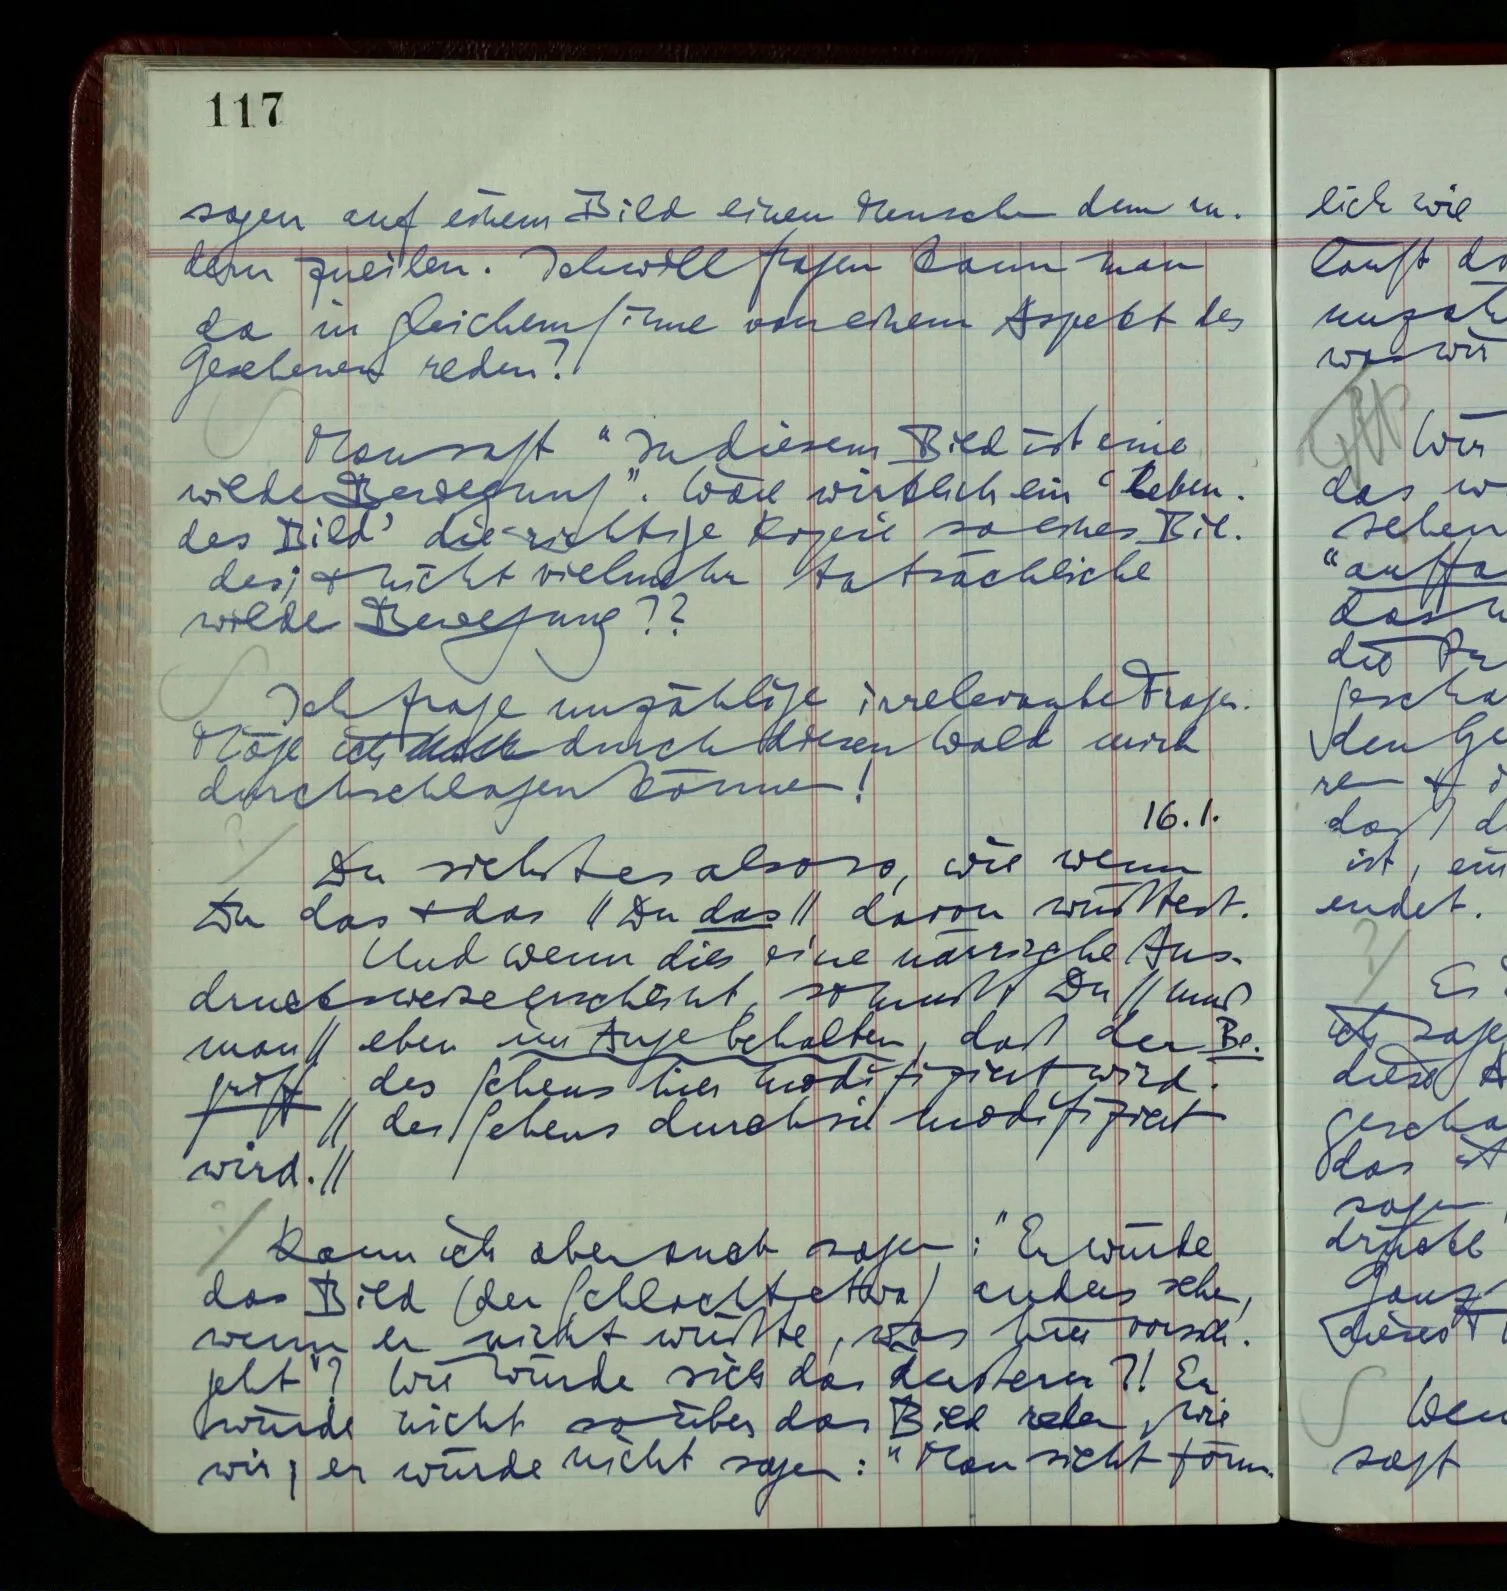 117
sagen auf einem Bild einen Menschen dem an-
dern zueilen. Ich will fragen kann man
da in gleichem Sinne von einem Aspekt des
Gesehenen reden?
Man sagt "In diesem Bild ist eine
wilde Bewegung". Wäre wirklich ein 'leben-
des Bild' die richtige Kopie so eines Bil-
des; & nicht vielmehr tatsächliche
wilde Bewegung??
Ich frage unzählige irrelevante Fragen.
Möge ich durch diesen Wald mich
durchschlagen können!
16.1.
Du siehst es also so, wie wenn
Du das & das // Du das // davon wüßtest.
Und wenn dies eine närrische Aus-
drucksweise erscheint, so mußt Du // muß
man // eben im Auge behalten, daß der Be-
griff des Sehens hier modifiziert wird.
// des Sehens durch sie modifiziert
wird. //
Kann ich aber auch sagen: "Er würde
das Bild (der Schlacht etwa) anders sehen,
wenn er nicht wüßte, was hier vorsich-
geht"? Wie würde sich das äußern?! Er
würde nicht so über das Bild reden, wie
wir; er würde nicht sagen: "Man sieht förm-
lich wie
läuft
was wir
Wir
das
sehen
"auffa
das
die
gescha
den
ist, ein
endet.
Es
ich sage
diese
gescha
das
sagen
drückt
Ganz
dieses
Wen
sagt